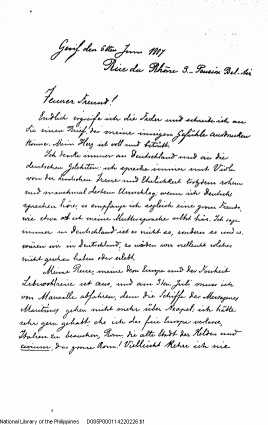 Genf den 6ten Juni 1887
Rue du Rhône 3 – Pension Bel-Air
Teurer Freund!
Endlich ergreife ich die Feder und schreibe ich an
Sie einen Brief, der meine innigen Gefühle ausdrucken
könne. Mein Herz ist voll und betrübt
Ich denke immer an Deutschland und an die
deutschen Gelehrten; ich spreche immer mit Viola
von der deutschen Treue und Ehrlichkeit trotzdem rohen
und manchmal derben Umschlag, wenn ich deutsche
sprechen höre, so empfange ich sogleich eine grosse Freude,
wie etwa ob ist meine Muttersprache selbst hier. Ich
immer in Deutschland ist es nicht so, sondern es und
wären wir in Deutschland, es würden wir vielleicht solches
nicht gesehen haben oder erlebt.
Meine Reise, meine von Europa und der Freiheit
Lebewohlreise ist aus, und am 3ten Juli muss ich
von Marseille abfahren, denn die Schiffe der Messageries
Maritimes gehen nicht mehr über Neapel; ich hätte
sehr gern gehabt, ehe ich das freie Europa verlasse,
Italien zu besuchen, Rom, die alte Stadt der Helden und
das grosse Rom! Vielleicht kehre ich nie
National Library of the Philippines
D005P000114220226.tif